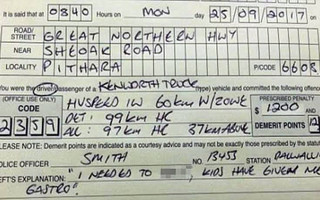 It is said that at 0840 Hours on MON day 25/09/2017 on
ROAD/STREET GREAT NORTHERN HWY
NEAR SHEOAK ROAD
LOCALITY PITHARA P/CODE 6608
You were the driver/passenger of a: KENWORTH TRUCK type) vehicle and committed the following offence
(OFFICE USE ONLY) CODE 2359
HVSPEED IW 60km W/ZONE
DET: 99km HC
ALL: 97km HC 37km ABOVE
PRESCRIBED PENALTY
$ 1200 and
DEMERIT POINTS 12
PLEASE NOTE: Demerit points are indicated as a courtesy and may not be exactly those prescribed by this statute.
POLICE OFFICER SMITH No. 13453 STATION DALWALLINU
EFT'S EXPLANATION: "I NEEDED TO , KIDS HAVE GIVEN ME
GASTRO".